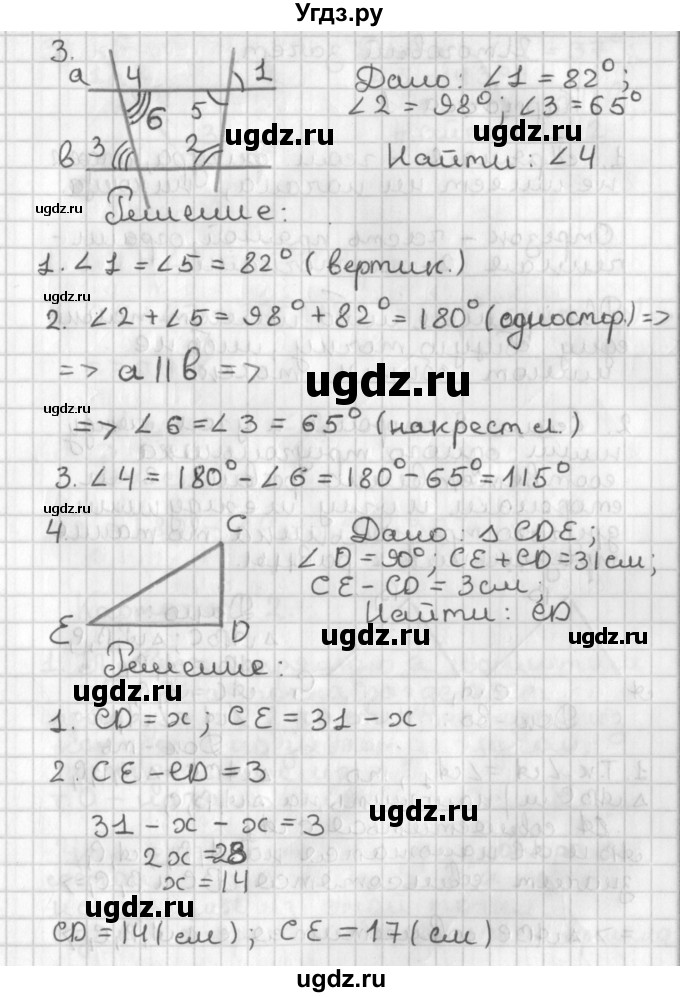 Угдз.ру
3.
a 4 1
6 5
в 3 2
Дано: ∠1 = 82°;
∠2 = 98°; ∠3 = 65°
ugdz.ru
Найти: ∠4
ugdz.ru
ugdz.ru
Решение:
1. ∠1 = ∠5 = 82° (вертик.)
ugdz.ru
2. ∠2 + ∠5 = 98° + 82° = 180° (одностор.) =>
=> a || в =>
ugdz.ru
ugdz.ru
=> ∠6 = ∠3 = 65° (накрест л.)
3. ∠4 = 180° - ∠6 = 180° - 65° = 115°
ugdz.ru
4.
C
E D
Дано: △ CDE;
∠D = 90°; CE + CD = 31 см;
CE - CD = 3 см;
Найти: CD
ugdz.ru
ugdz.ru
Решение:
ugdz.ru
1. CD = x; CE = 31 - x
2. CE - CD = 3
ugdz.ru
31 - x - x = 3
2x = 28
x = 14
ugdz.ru
CD = 14 (см); CE = 17 (см)
ugdz.ru